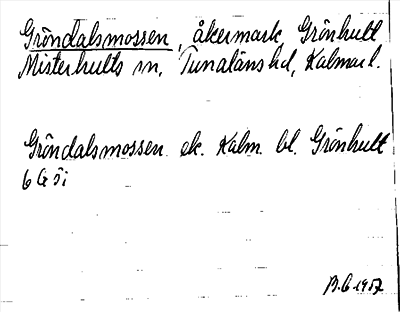 Gröndalsmossen, åkermark Grönhult
Misterhults sn, Tunaläns hd, Kalmar l.
Gröndalsmossen ek. Kalm. bl. Grönhult
6 G öi
B.G. 1957